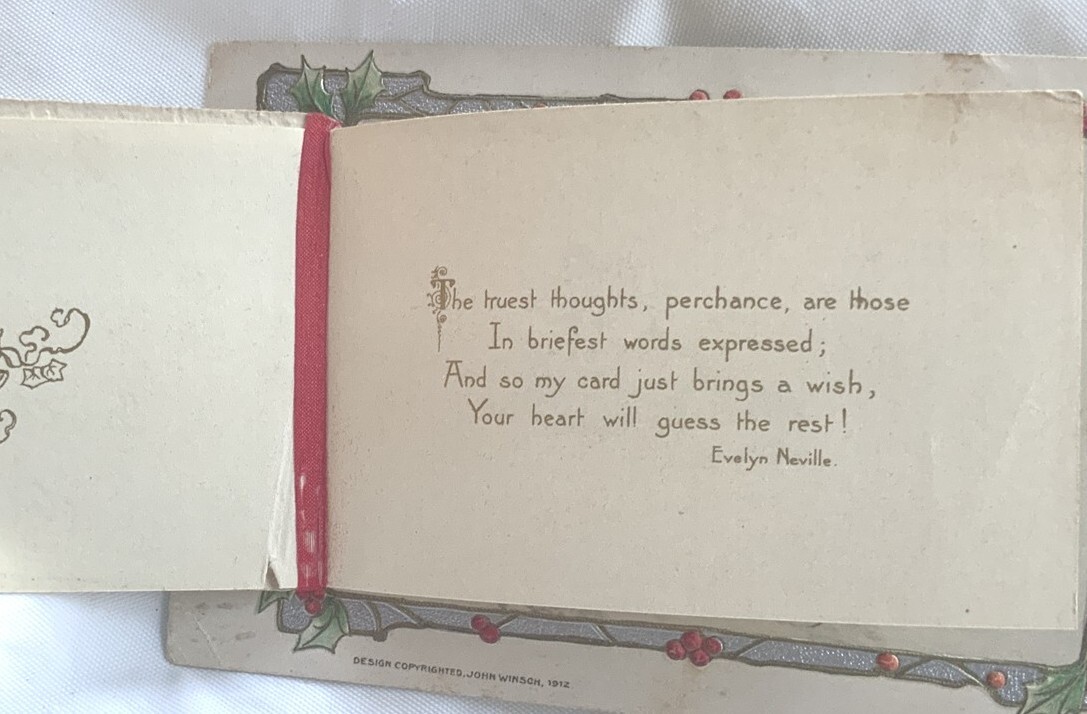 The truest thoughts, perchance, are those
In briefest words expressed;
And so my card just brings a wish,
Your heart will guess the rest!
Evelyn Neville.
DESIGN COPYRIGHTED, JOHN WINSCH, 1912